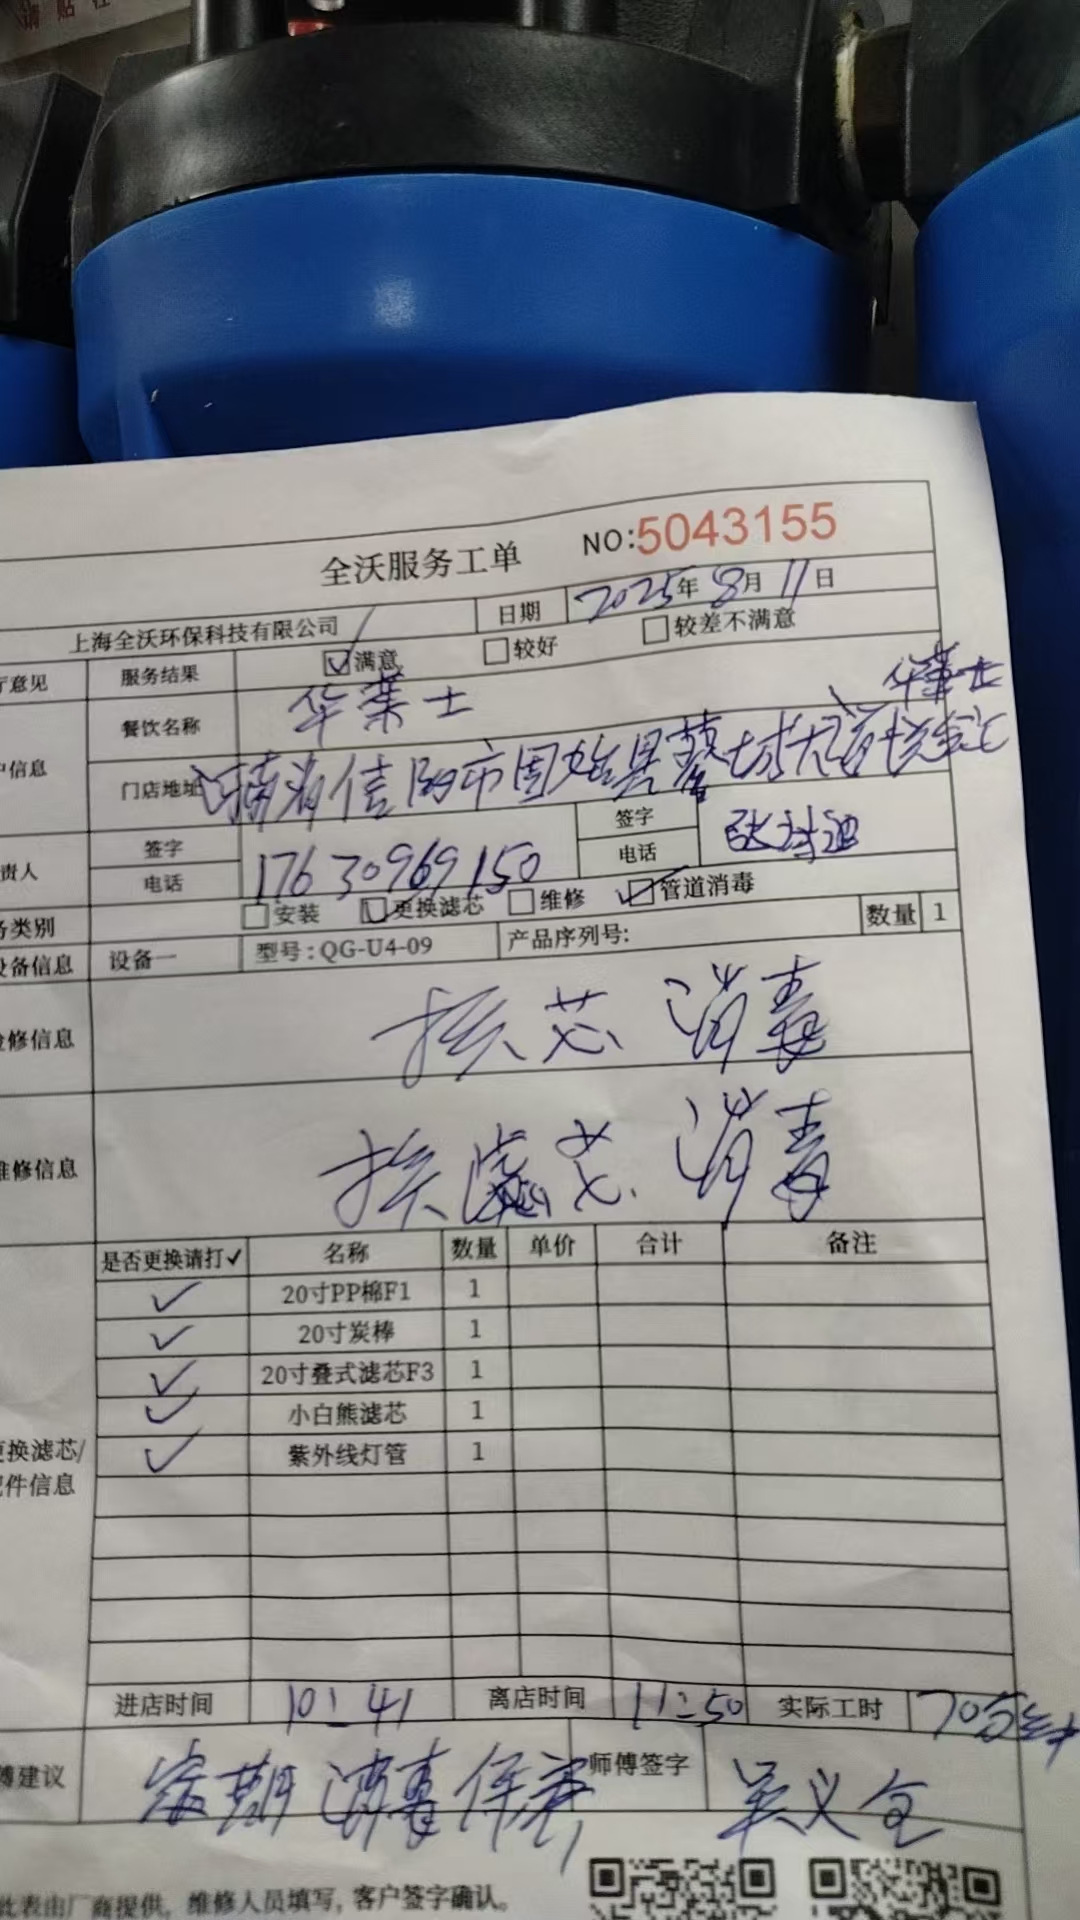 全沃服务工单 NO:5043155
上海全沃环保科技有限公司 日期 2025年8月11日
厅意见 服务结果 满意 较好 较差不满意
户信息 餐饮名称 华莱士
门店地址 河南省信阳市固始县蓼城大道 华莱士
责人 签字 签字
电话 17630969150 电话
务类别 安装 更换滤芯 维修 管道消毒
设备信息 设备一 型号:QG-U4-09 产品序列号: 数量 1
检修信息 换芯 消毒
维修信息 换滤芯 消毒
是否更换请打✓ 名称 数量 单价 合计 备注
✓ 20寸PP棉F1 1
✓ 20寸炭棒 1
✓ 20寸叠式滤芯F3 1
✓ 小白熊滤芯 1
✓ 紫外线灯管 1
更换滤芯/
配件信息
进店时间 10:41 离店时间 11:50 实际工时 70分钟
傅建议 定期消毒保养 师傅签字 吴义全
此表由厂商提供，维修人员填写，客户签字确认。